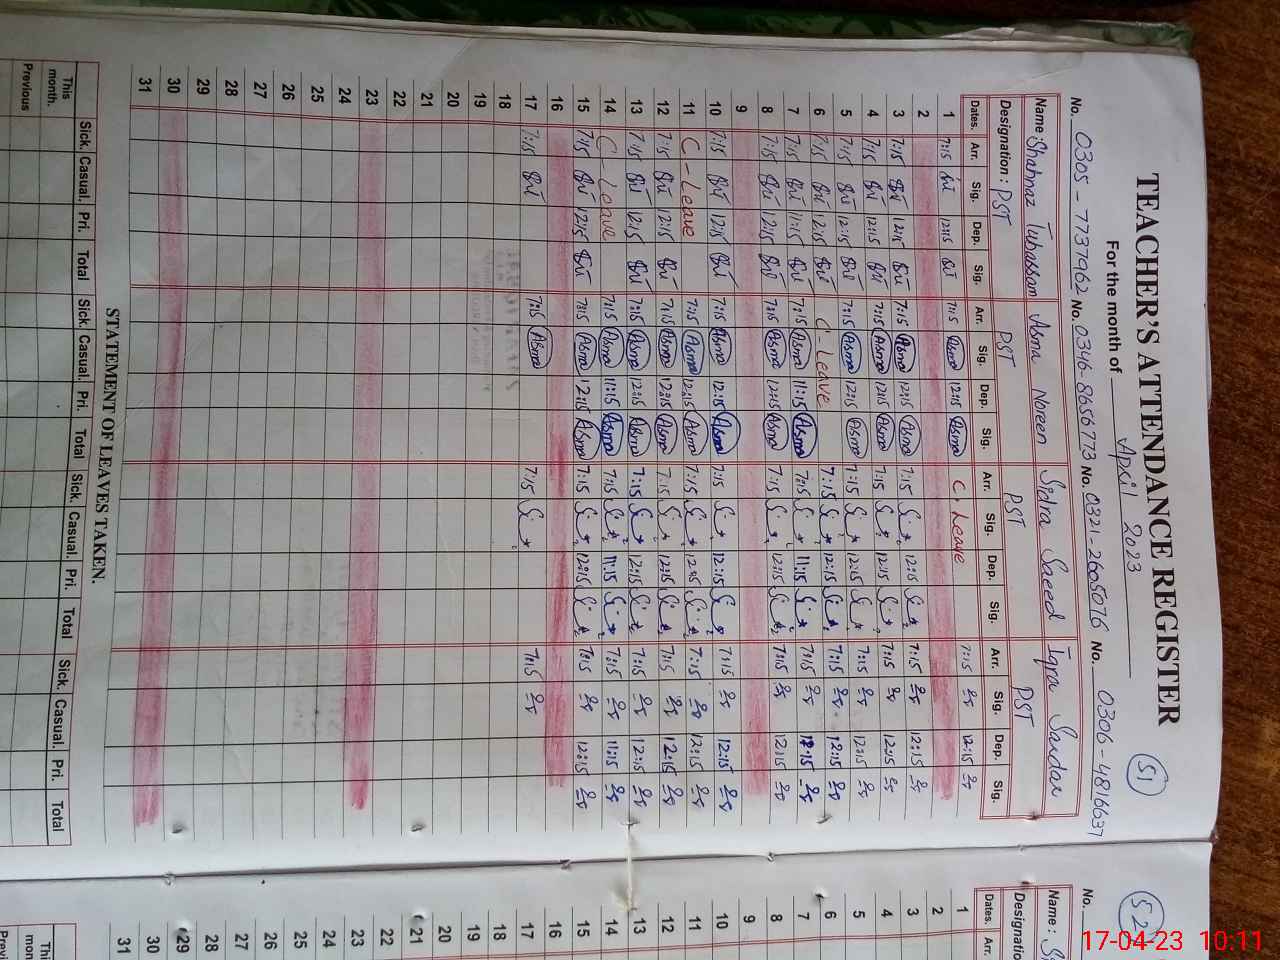 TEACHER'S ATTENDANCE REGISTER
51
For the month of April 2023
No. 0305-7737962 No. 0346-8656773 No. 0321-2605076 No. 0306-4816637
Name: Shahnaz Tabassam Asma Noreen Sidra Saeed Iqra Sardar
Designation: PST PST PST PST
Dates. Arr. Sig. Dep. Sig. Arr. Sig. Dep. Sig. Arr. Sig. Dep. Sig. Arr. Sig. Dep. Sig.
1 7:15 12:15 7:15 Asma 12:15 Asma C. Leave 7:15 12:15
2
3 7:15 12:15 7:15 Asma 12:15 Asma 7:15 12:15 7:15 12:15
4 7:15 12:15 7:15 Asma 12:15 Asma 7:15 12:15 7:15 12:15
5 7:15 12:15 7:15 Asma 12:15 Asma 7:15 12:15 7:15 12:15
6 7:15 12:15 C-Leave 7:15 12:15 7:15 12:15
7 7:15 11:15 7:15 Asma 11:15 Asma 7:15 11:15 7:15
8 7:15 12:15 7:15 Asma 12:15 Asma 7:15 12:15 7:15 12:15
9
10 7:15 12:15 7:15 Asma 12:15 Asma 7:15 12:15 7:15 12:15
11 C-Leave 7:15 Asma 12:15 Asma 7:15 12:15 7:15 12:15
12 7:15 12:15 7:15 Asma 12:15 Asma 7:15 12:15 7:15 12:15
13 7:15 12:15 7:15 Asma 12:15 Asma 7:15 12:15 7:15 12:15
14 C-Leave 7:15 Asma 11:15 Asma 7:15 11:15 7:15 11:15
15 7:15 12:15 7:15 Asma 12:15 Asma 7:15 12:15 7:15 12:15
16
17 7:15 7:15 Asma 7:15 7:15
18
19
20
21
22
23
24
25
26
27
28
29
30
31
STATEMENT OF LEAVES TAKEN.
Sick. Casual. Pri. Total Sick. Casual. Pri. Total Sick. Casual. Pri. Total Sick. Casual. Pri. Total
This month.
Previous
52
No.
Name:
Designation
Dates. Arr.
1
2
3
4
5
6
7
8
9
10
11
12
13
14
15
16
17
18
19
20
21
22
23
24
25
26
27
28
29
30
31
17-04-23 10:11